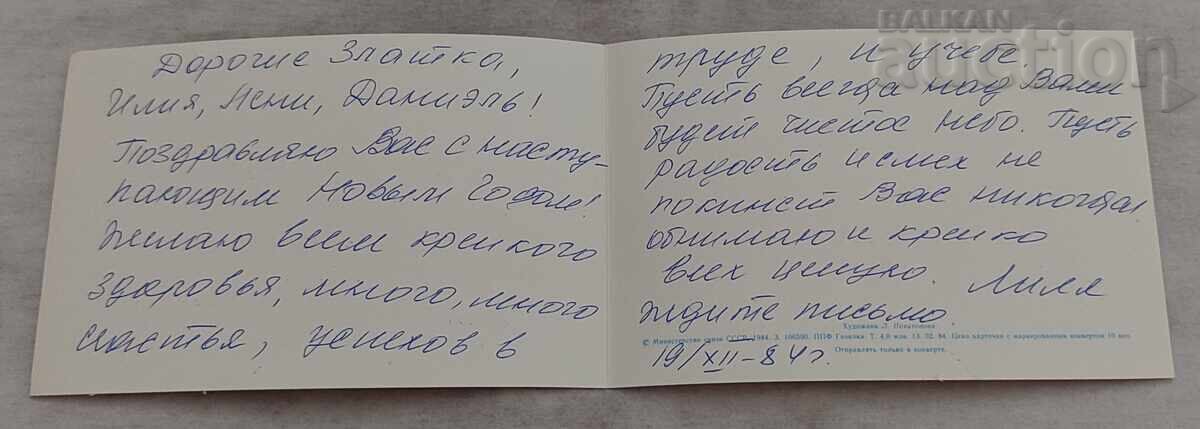 Дорогие Златка,
Илия, Нени, Даниэль!
Поздравляю Вас с насту-
пающим Новым Годом!
Желаю всем крепкого
здоровья, много, много
счастья, успехов в
труде, и учебе.
Пусть всегда над Вами
будет чистое небо. Пусть
радость и смех не
покинет Вас никогда!
обнимаю и крепко
всех целую. Лиля
Ждите письмо
19/XII-84г.
Художник Л. Похитонова
© Министерство связи СССР. 1984. З. 106500. ППФ Гознака. Т. 4,0 млн. 13. 02. 84. Цена карточки с маркированным конвертом 10 коп.
Отправлять только в конверте.
BALKAN
auction